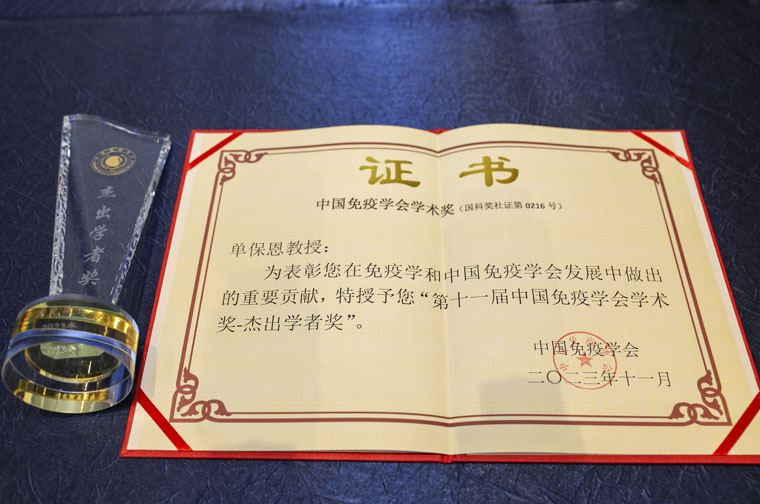 杰出学者奖
2023年
证书
中国免疫学会学术奖（国科奖社证第 0216 号）
单保恩教授：
为表彰您在免疫学和中国免疫学会发展中做出
的重要贡献，特授予您“第十一届中国免疫学会学术
奖-杰出学者奖”。
中国免疫学会
二〇二三年十一月